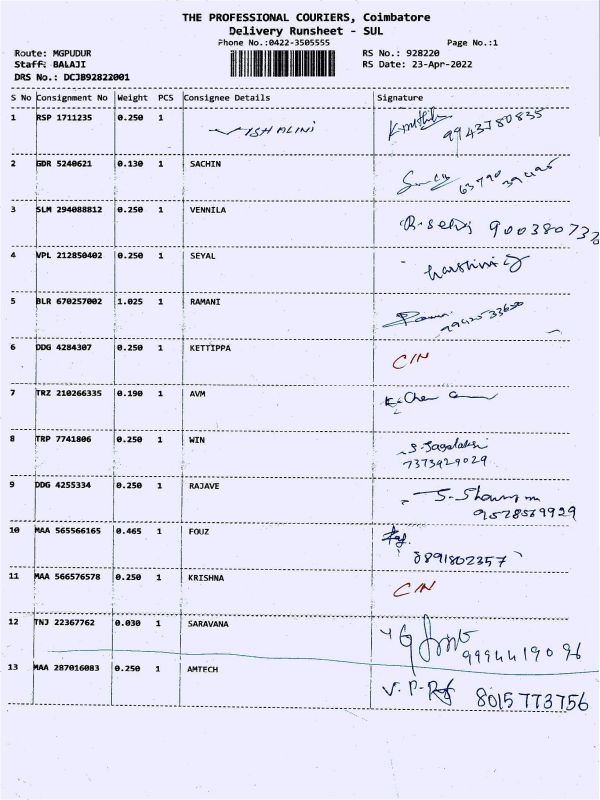 THE PROFESSIONAL COURIERS, Coimbatore
Delivery Runsheet - SUL
Phone No.:0422-3505555 Page No.:1
Route: MGPUDUR RS No.: 928220
Staff: BALAJI RS Date: 23-Apr-2022
DRS No.: DCJB92822001
S No Consignment No Weight PCS Consignee Details Signature
1 RSP 1711235 0.250 1 VISHALINI
9943780835
2 GDR 5240621 0.130 1 SACHIN
3 SLM 294088812 0.250 1 VENNILA
R-selvi 900380732
4 VPL 212850402 0.250 1 SEYAL
5 BLR 670257002 1.025 1 RAMANI
6 DDG 4284307 0.250 1 KETTIPPA C/N
7 TRZ 210266335 0.190 1 AVM
8 TRP 7741806 0.250 1 WIN
7373929029
9 DDG 4255334 0.250 1 RAJAVE
9578569929
10 MAA 565566165 0.465 1 FOUZ
8891802357
11 MAA 566576578 0.250 1 KRISHNA C/N
12 TNJ 22367762 0.030 1 SARAVANA
9994419096
13 MAA 287016083 0.250 1 AMTECH
8015773756